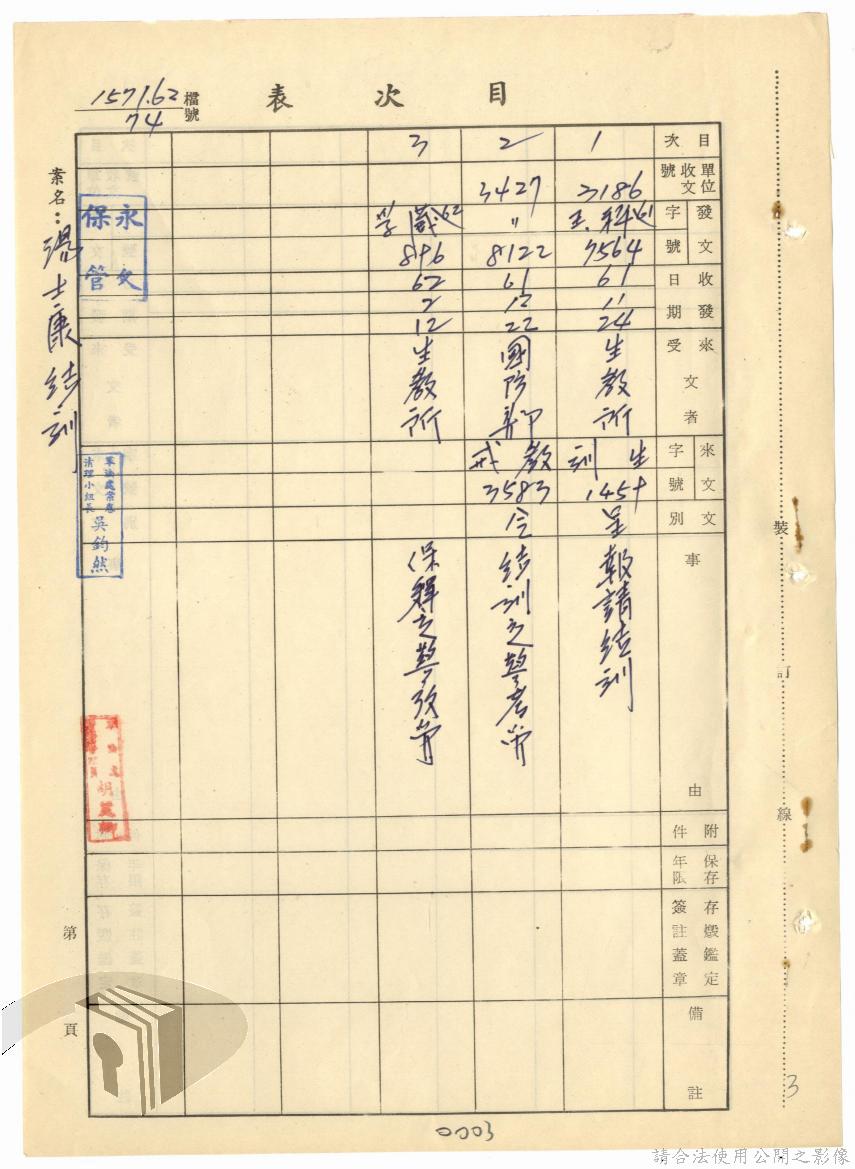 目次表
檔號
1571.62
74
目次
單位收文號
發文字號
收發日期
來受文者
來文字號
文別
事由
附件
保存年限
存燬鑑定簽註蓋章
備註
1
3186
61
7564
61
11
24
生教所
生訓
1454
呈
報請結訓
2
3427
〃
8122
61
12
22
國防部
教戒
3583
令
結訓之警考管
3
62
896
62
2
12
生教所
保釋之警考管
案名:湯士康結訓
永久保管
軍法處案卷清理小組長
吳鈞然
胡
第
頁
裝
訂
線
3
0003
請合法使用公開之影像